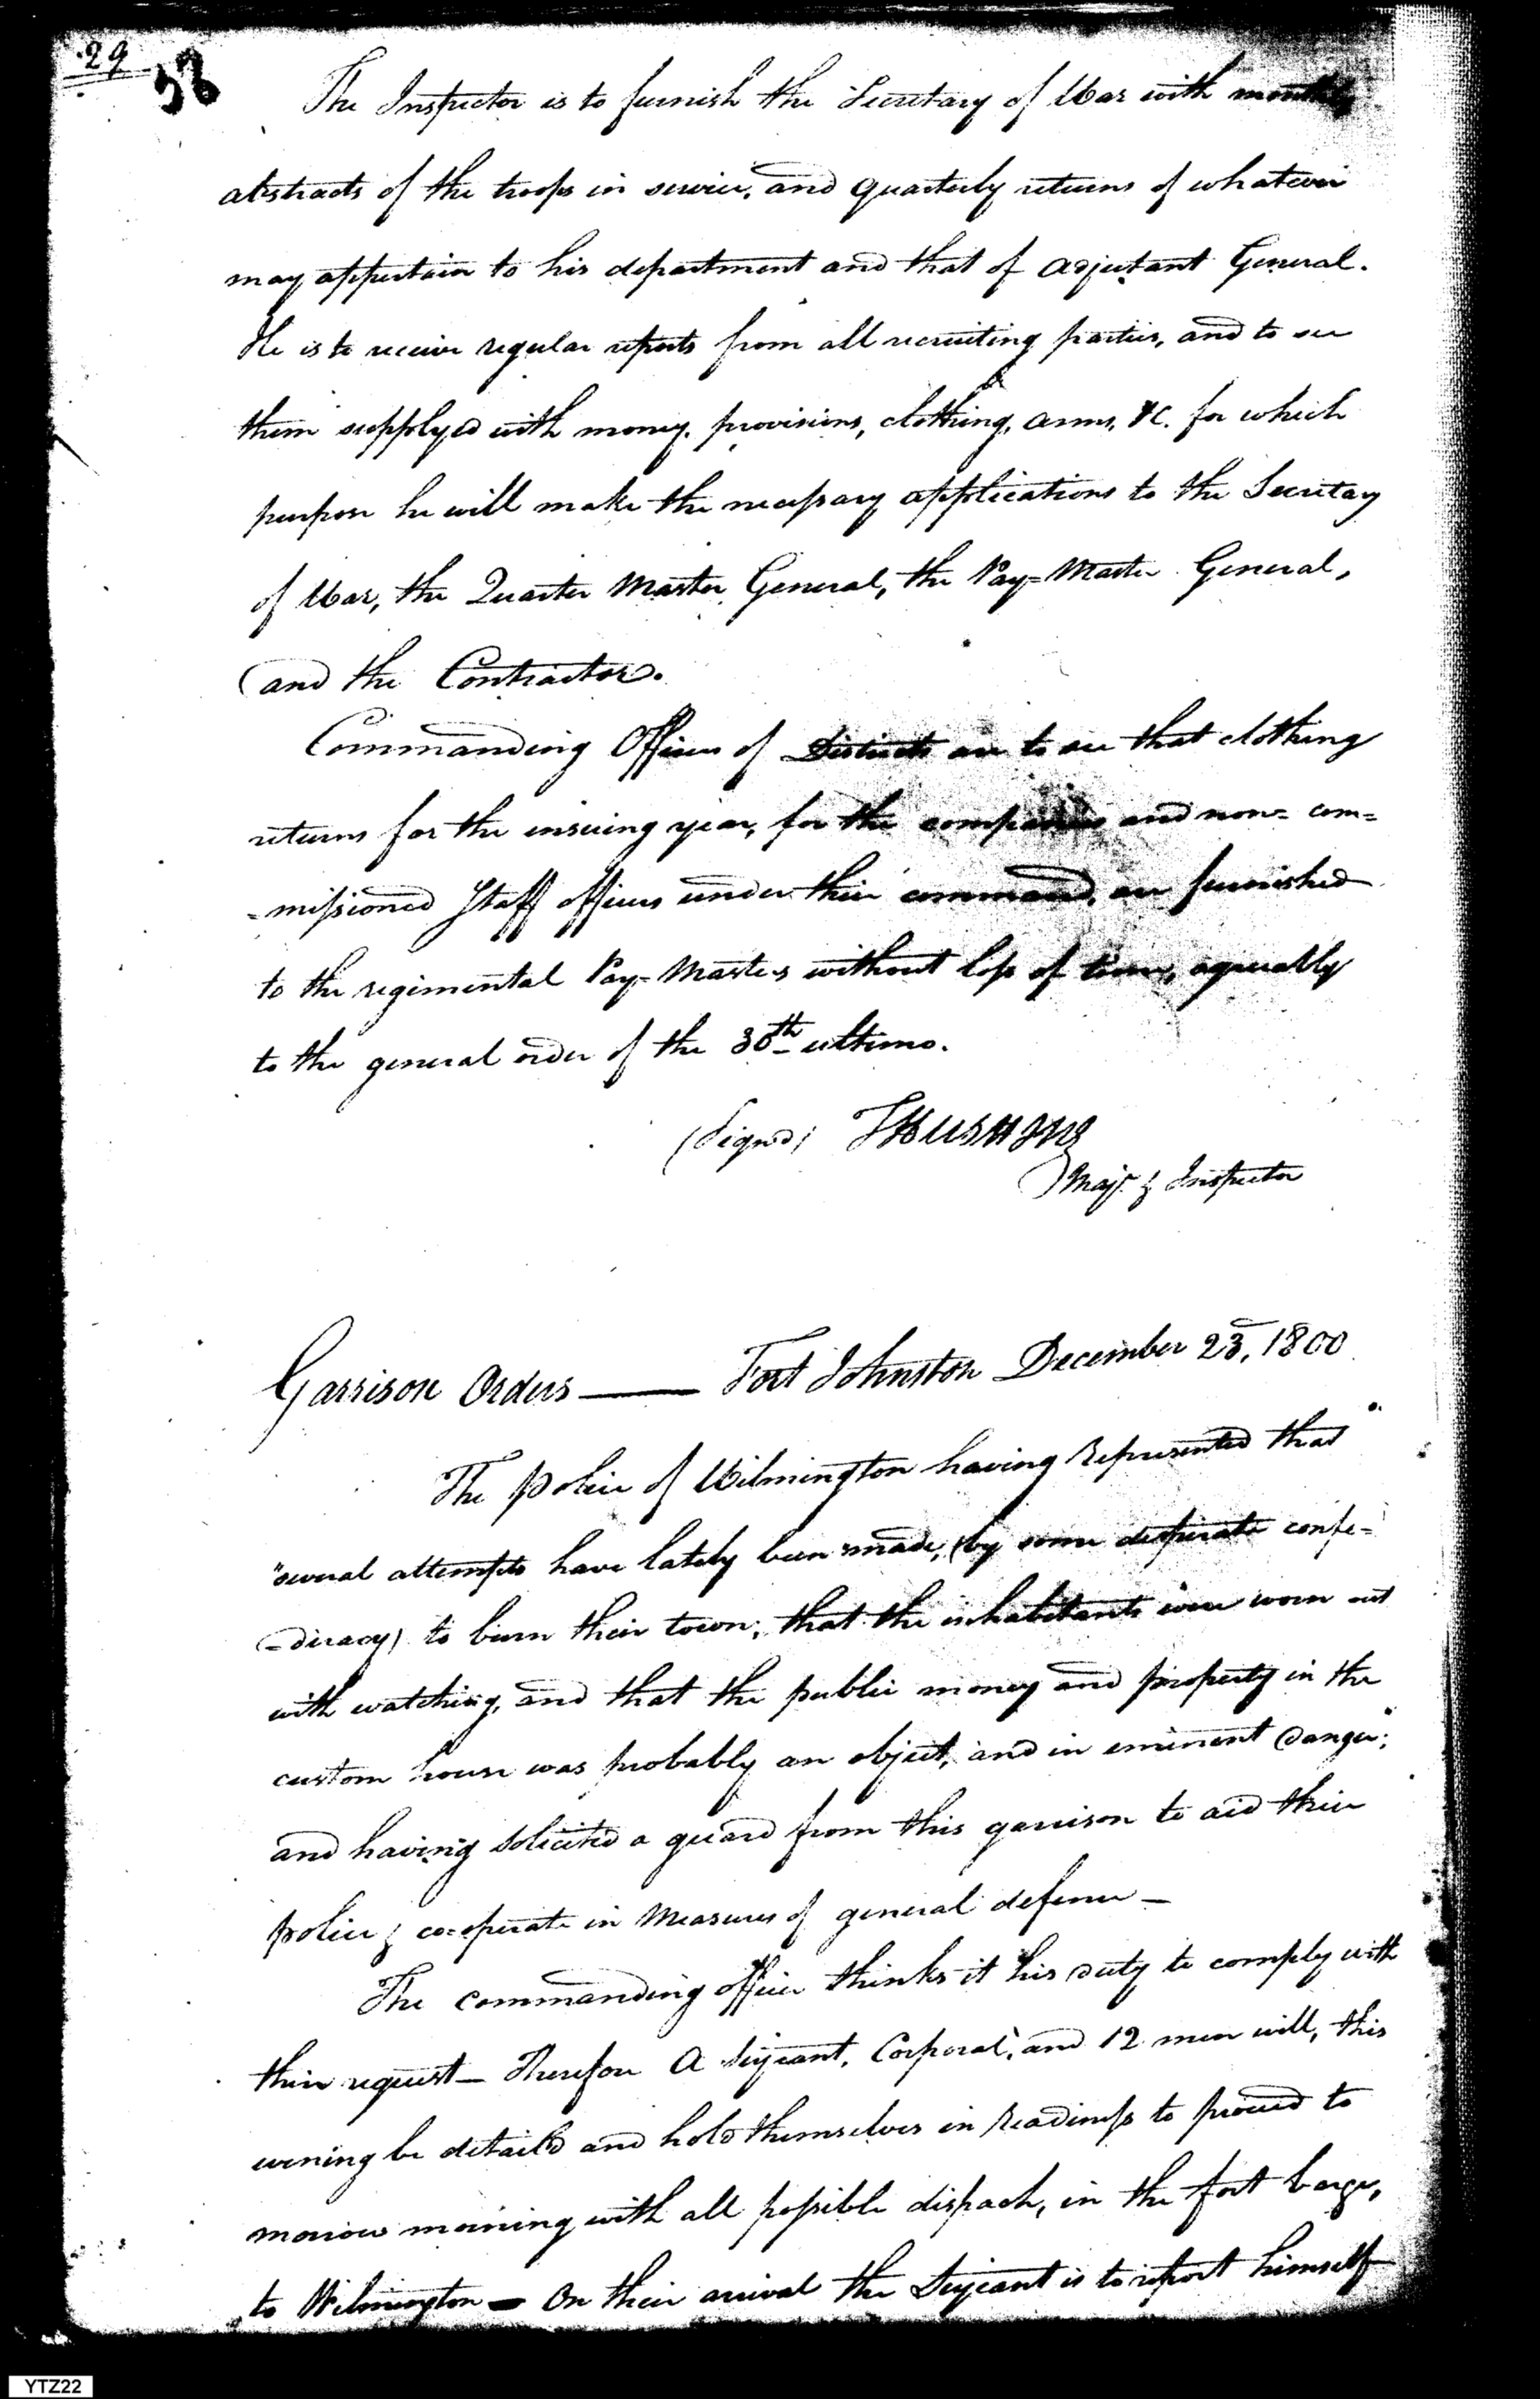 29
38
The Inspector is to furnish the Secretary of War with monthly
abstracts of the troops in service, and quarterly returns of whatever
may appertain to his department and that of adjutant General.
He is to receive regular reports from all recruiting parties, and to see
them supplyed with money, provisions, clothing, arms, &c. for which
purpose he will make the necessary applications to the Secretary
of War, the Quarter Master General, the Pay=Master General,
and the Contractor.
Commanding Officers of Districts are to see that clothing
returns for the insuing year, for the companies and non= com=
=missioned Staff officers under their command, are furnished
to the regimental Pay=Masters without loss of time, agreeably
to the general order of the 30th ultimo.
(Signed) THCUSHING
Majr. & Inspector
Garrison Orders —— Fort Johnston December 23, 1800
The police of Wilmington having represented that
"several attempts have lately been made, (by some desperate confe=
=diracy) to burn their town; that the inhabitants were worn out
with watching, and that the public money and property in the
custom house was probably an object, and in eminent danger";
and having solicited a guard from this garrison to aid their
police & co=operate in measures of general defence —
The commanding officer thinks it his duty to comply with
their request — Therefore A Serjeant, Corporal, and 12 men will, this
evening be detailed and hold themselves in readiness to proceed to
morrow morning with all possible dispach, in the fort barge,
to Wilmington — On their arrival the Serjeant is to report himself
YTZ22